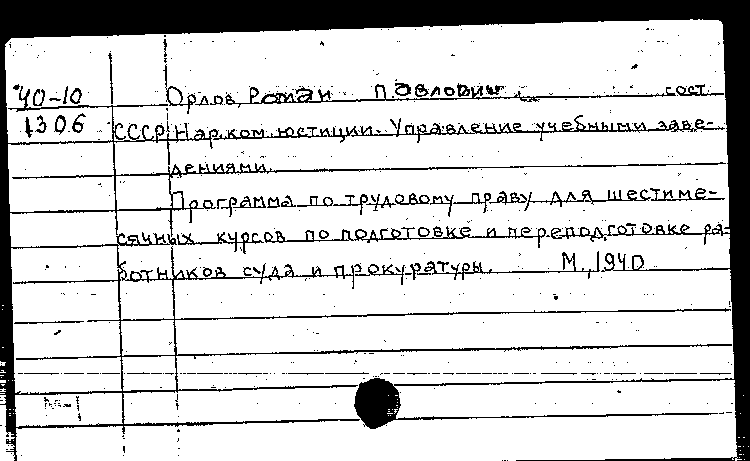 40-10 Орлов, Роман Павлович сост
1306 СССР Нар.ком. юстиции. Управление учебными заве-
дениями.
Программа по трудовому праву для шестиме-
сячных курсов по подготовке и переподготовке ра-
ботников суда и прокуратуры. М., 1940